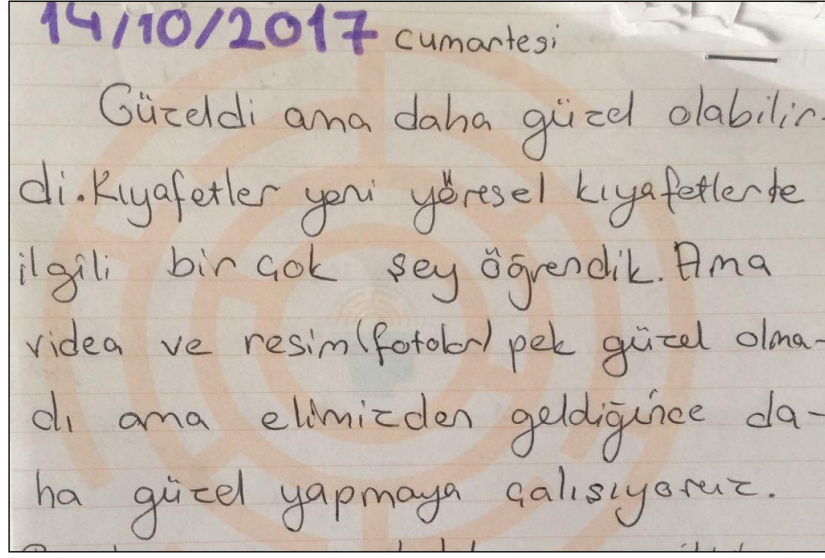 14/10/2017 cumartesi
Güzeldi ama daha güzel olabilir-
di. Kıyafetler yeni yöresel kıyafetlerle
ilgili bir çok şey öğrendik. Ama
videa ve resim (fotolar) pek güzel olma-
dı ama elimizden geldiğince da-
ha güzel yapmaya çalısıyoruz.